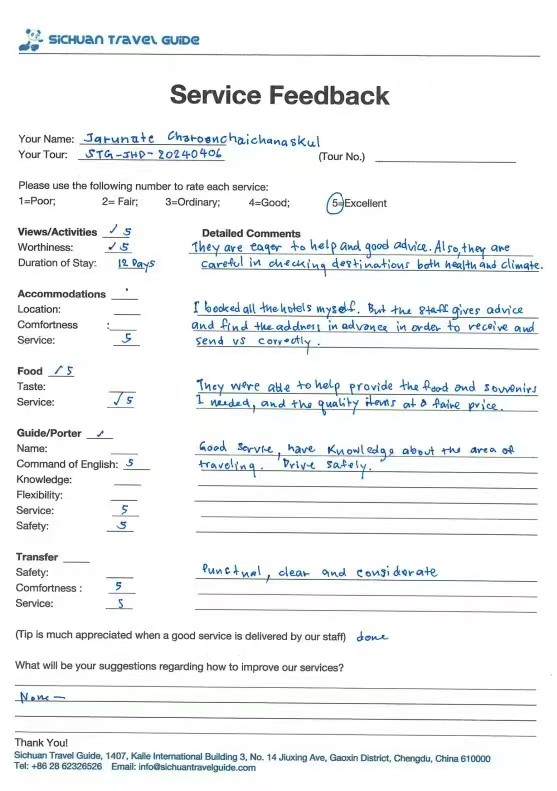 SICHUAN TRAVEL GUIDE
Service Feedback
Your Name: Jarunate Charoenchaichanaskul
Your Tour: STG-JHP-20240406 (Tour No.)
Please use the following number to rate each service:
1=Poor; 2= Fair; 3=Ordinary; 4=Good; 5=Excellent
Views/Activities ✓ 5 Detailed Comments
Worthiness: ✓ 5 They are eager to help and good advice. Also, they are
Duration of Stay: 12 Days careful in checking destinations both health and climate.
Accommodations
Location: I booked all the hotels myself. But the staff gives advice
Comfortness : and find the address in advance in order to receive and
Service: 5 send us correctly.
Food ✓ 5
Taste: They were able to help provide the food and souvenirs
Service: ✓ 5 I needed, and the quality items at a faire price.
Guide/Porter ✓
Name: Good servie, have knowledge about the area of
Command of English: 5 traveling. Drive safely.
Knowledge:
Flexibility:
Service: 5
Safety: 5
Transfer
Safety: Punctual, clear and considerate
Comfortness : 5
Service: 5
(Tip is much appreciated when a good service is delivered by our staff) done
What will be your suggestions regarding how to improve our services?
None —
Thank You!
Sichuan Travel Guide, 1407, Kaile International Building 3, No. 14 Jiuxing Ave, Gaoxin District, Chengdu, China 610000
Tel: +86 28 62326526 Email: info@sichuantravelguide.com